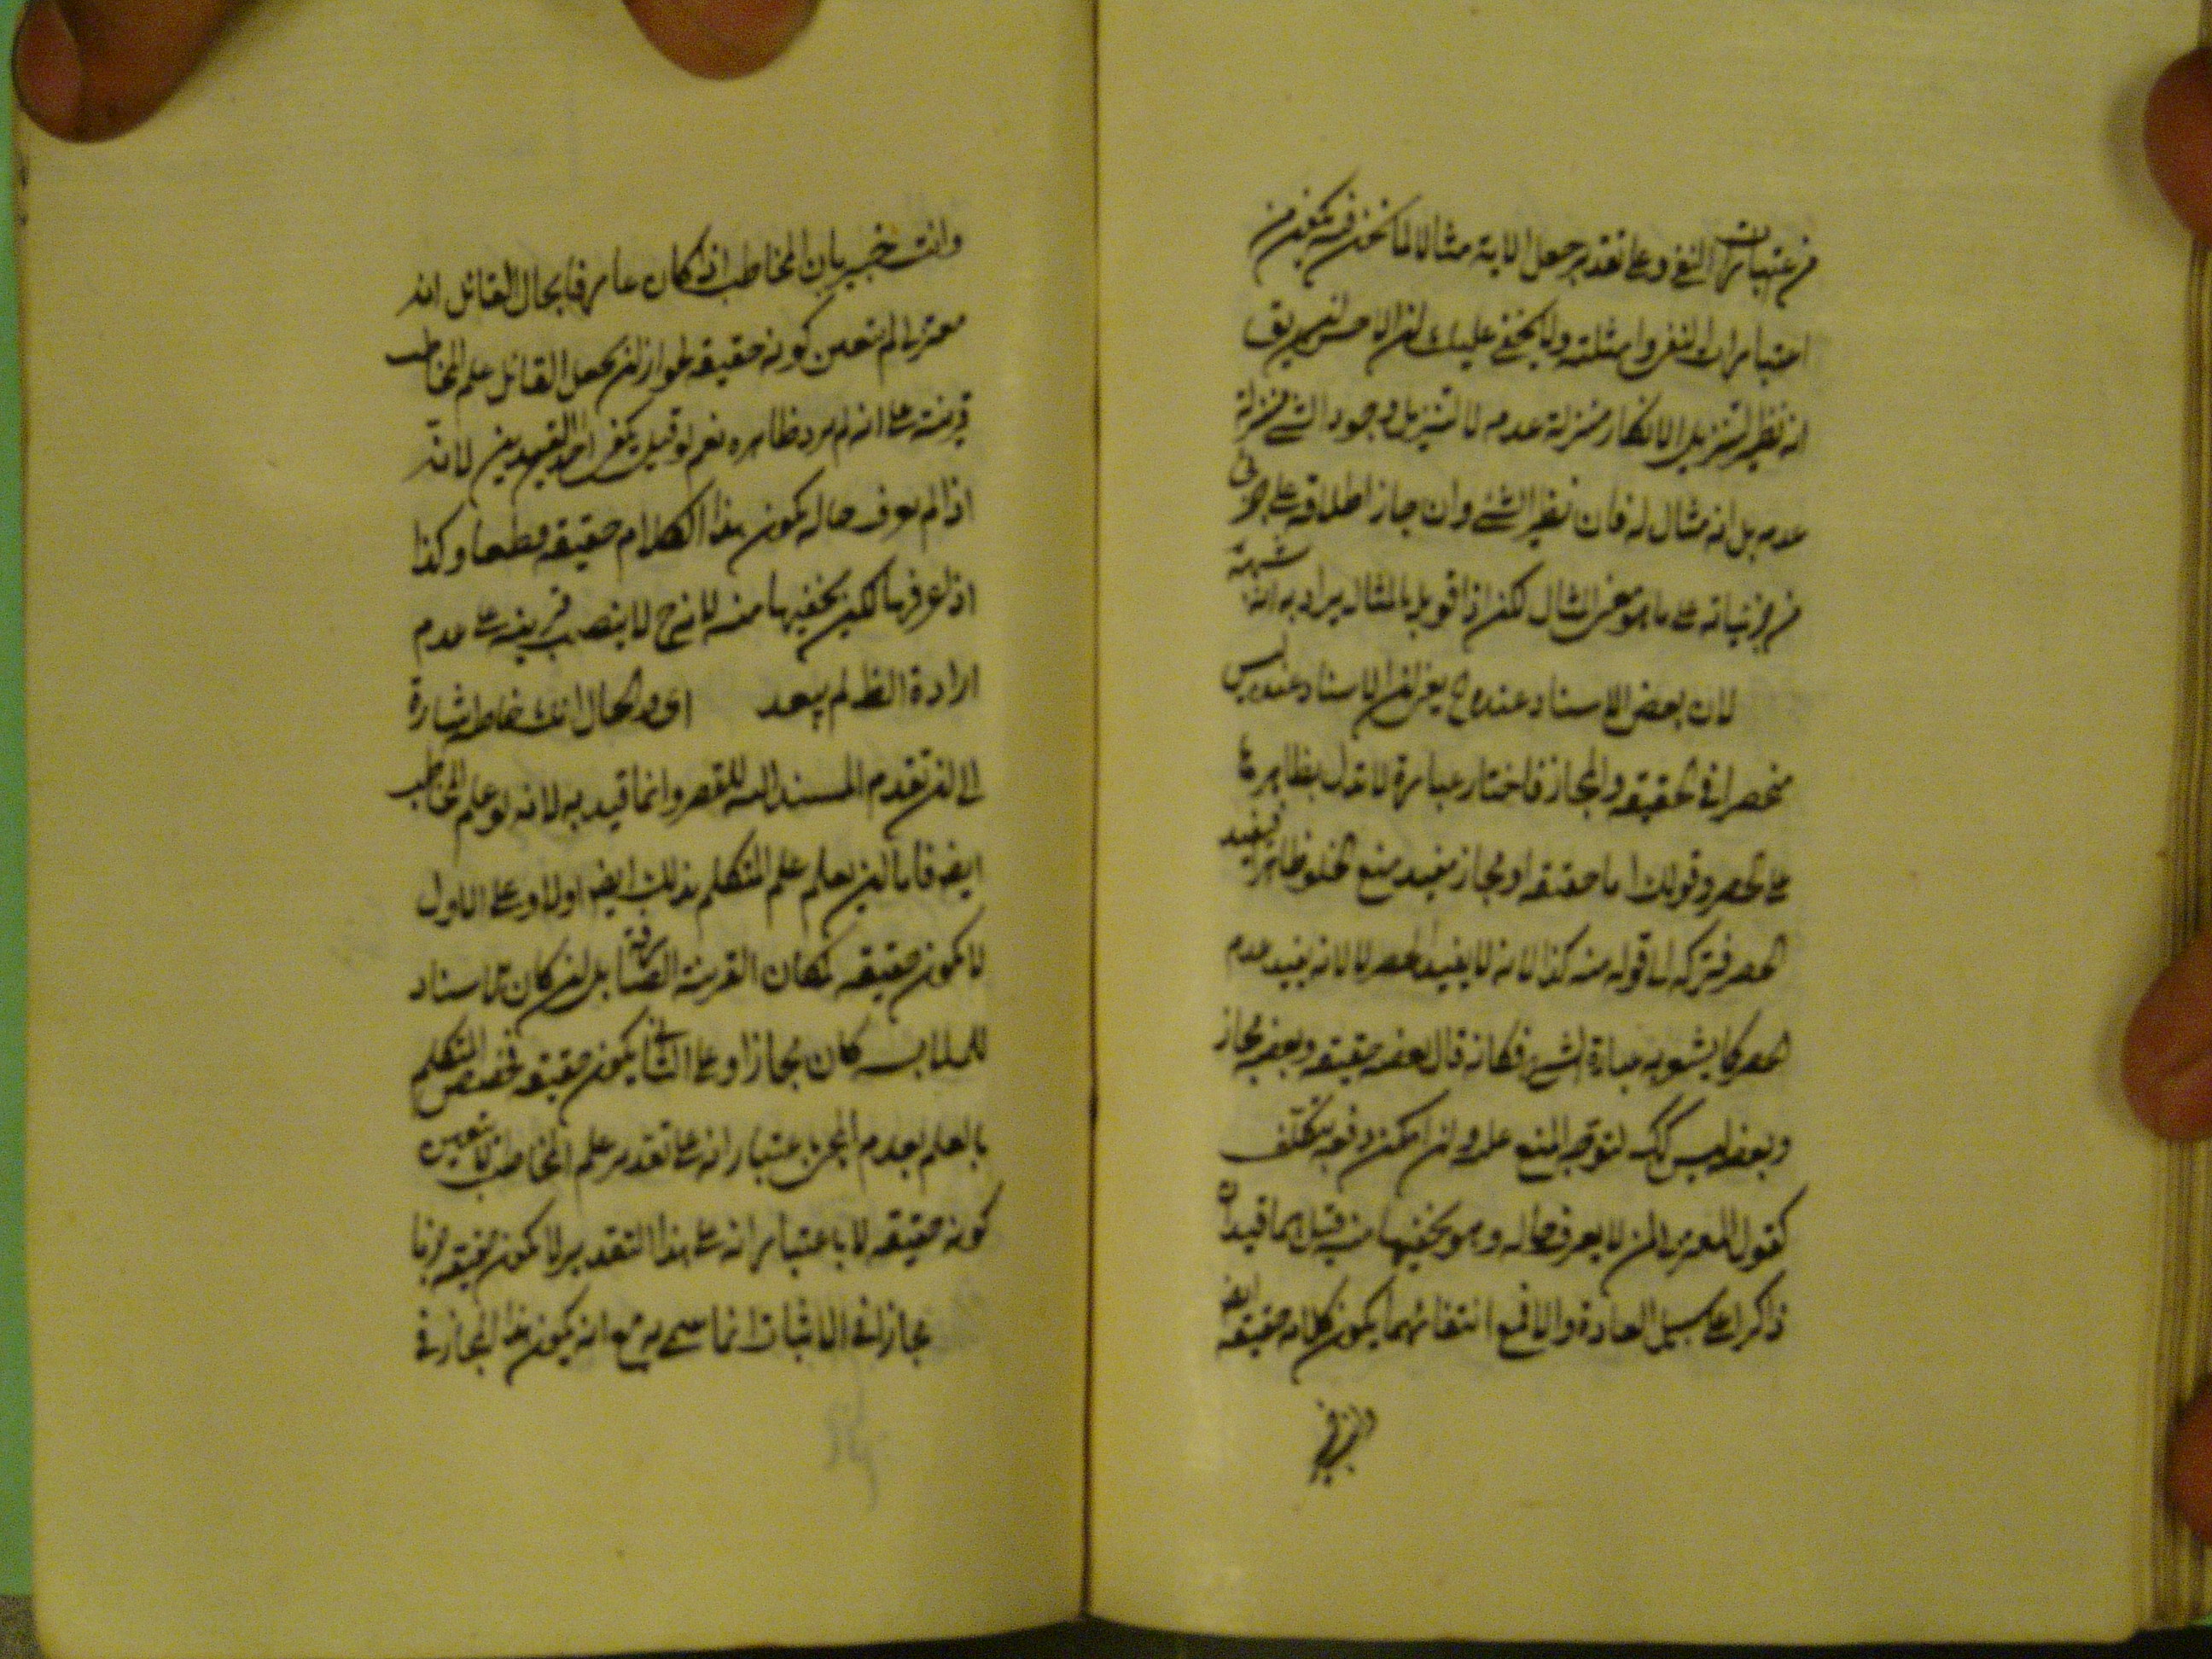 من اعتبارات النفي وعلى تقدير جعل الاية مثالا لما نحن فيه يكون من
اعتبارات النفي وامثلته ولا يخفى عليك ان الاحسن ان يق
انه نظير لتنزيل الانكار منزلة عدمه لا تنزيل وجود الشئ منزلة
عدمه بل انه مثال له فان نظير الشئ وان جاز اطلاقه على جزئى
من جزئياته على ما هو معنى المثال لكن اذا قوبل بالمثال يراد به انه شبهه
لان بعض الاسناد عنده الخ يعنى ان الاسناد عنده ليس
منحصرا فى الحقيقه والمجاز فاختار عبارة لا تدل بظاهرها
على الحصر وقولك اما حقيقه او مجاز مفيد منع الخلو ظاهرا فيفيد
الحصر فتركه الى قوله منه كذا لانه لا يفيد الحصر لا لانه يفيد عدم
الحصر كما يشعر به عبارة الشرح فكانه قال بعضه حقيقه وبعضه مجاز
وبعضه ليس كك لتوجه المنع عليه وان امكن دفعه بتكلف
كقول المعتزلى لمن لا يعرف حاله وهو يخفيها منه قيل هما قيدان
ذكرا على سبيل العادة والا فمع انتفائهما يكون كلامه حقيقه ايض
وانت خبير بان المخاطب اذا كان عارفا بحال القائل انه
معتزلى لم يتعين كونه حقيقه لجواز ان يجعل القائل علم المخاطب
قرينة على انه لم يرد ظاهره نعم لو قيل يكفى احد القيدين لانه
اذا لم يعرف حاله يكون هذا الكلام حقيقه قطعا وكذا
اذا عرفها لكن يخفيها منه لانه ح لا ينصب قرينه على عدم
ارادة الظ لم يبعد اى والحال انك خاصه اشارة
الى ان تقدم المسند اليه للقصر وانما قيد به لانه لو علم المخاطب
ايض فاما ان يعلم علم المتكلم بذلك ايض اولا وعلى الاول
لا يكون حقيقه لمكان القرينة الصارفة بل ان كان ثم اسناد
للملابسه كان مجازا وعلى الثانى يكون حقيقه فتخصيص المتكلم
بالعلم بعدم المجئ باعتبار انه على تقدير علم المخاطب لا يتعين
كونه حقيقه لا باعتبار انه على هذا التقدير لا يكون حقيقه جزما
مجازا فى الاثبات انما سمى به مع انه يكون هذا المجاز فى